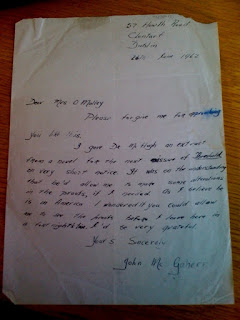 57 Howth Road
Clontarf
Dublin
26th June 1962
Dear Mrs O Malley
Please forgive me for approaching
you like this.
I gave Dr Mc Hugh an extract
from a novel for the next issue of Threshold
at very short notice. It was on the understanding
that he'd allow me to make some alterations
in the proofs, if I wanted. As I believe he
is in America I wondered if you could allow
me to see the proofs before I leave here in
a fortnight. I'd be very grateful.
Yours Sincerely
John Mc Gahern